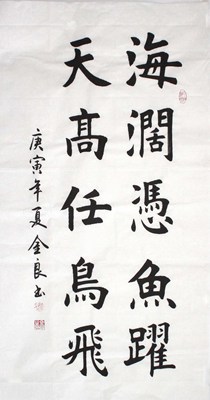 海闊憑魚躍
天高任鳥飛
庚寅年夏金良书